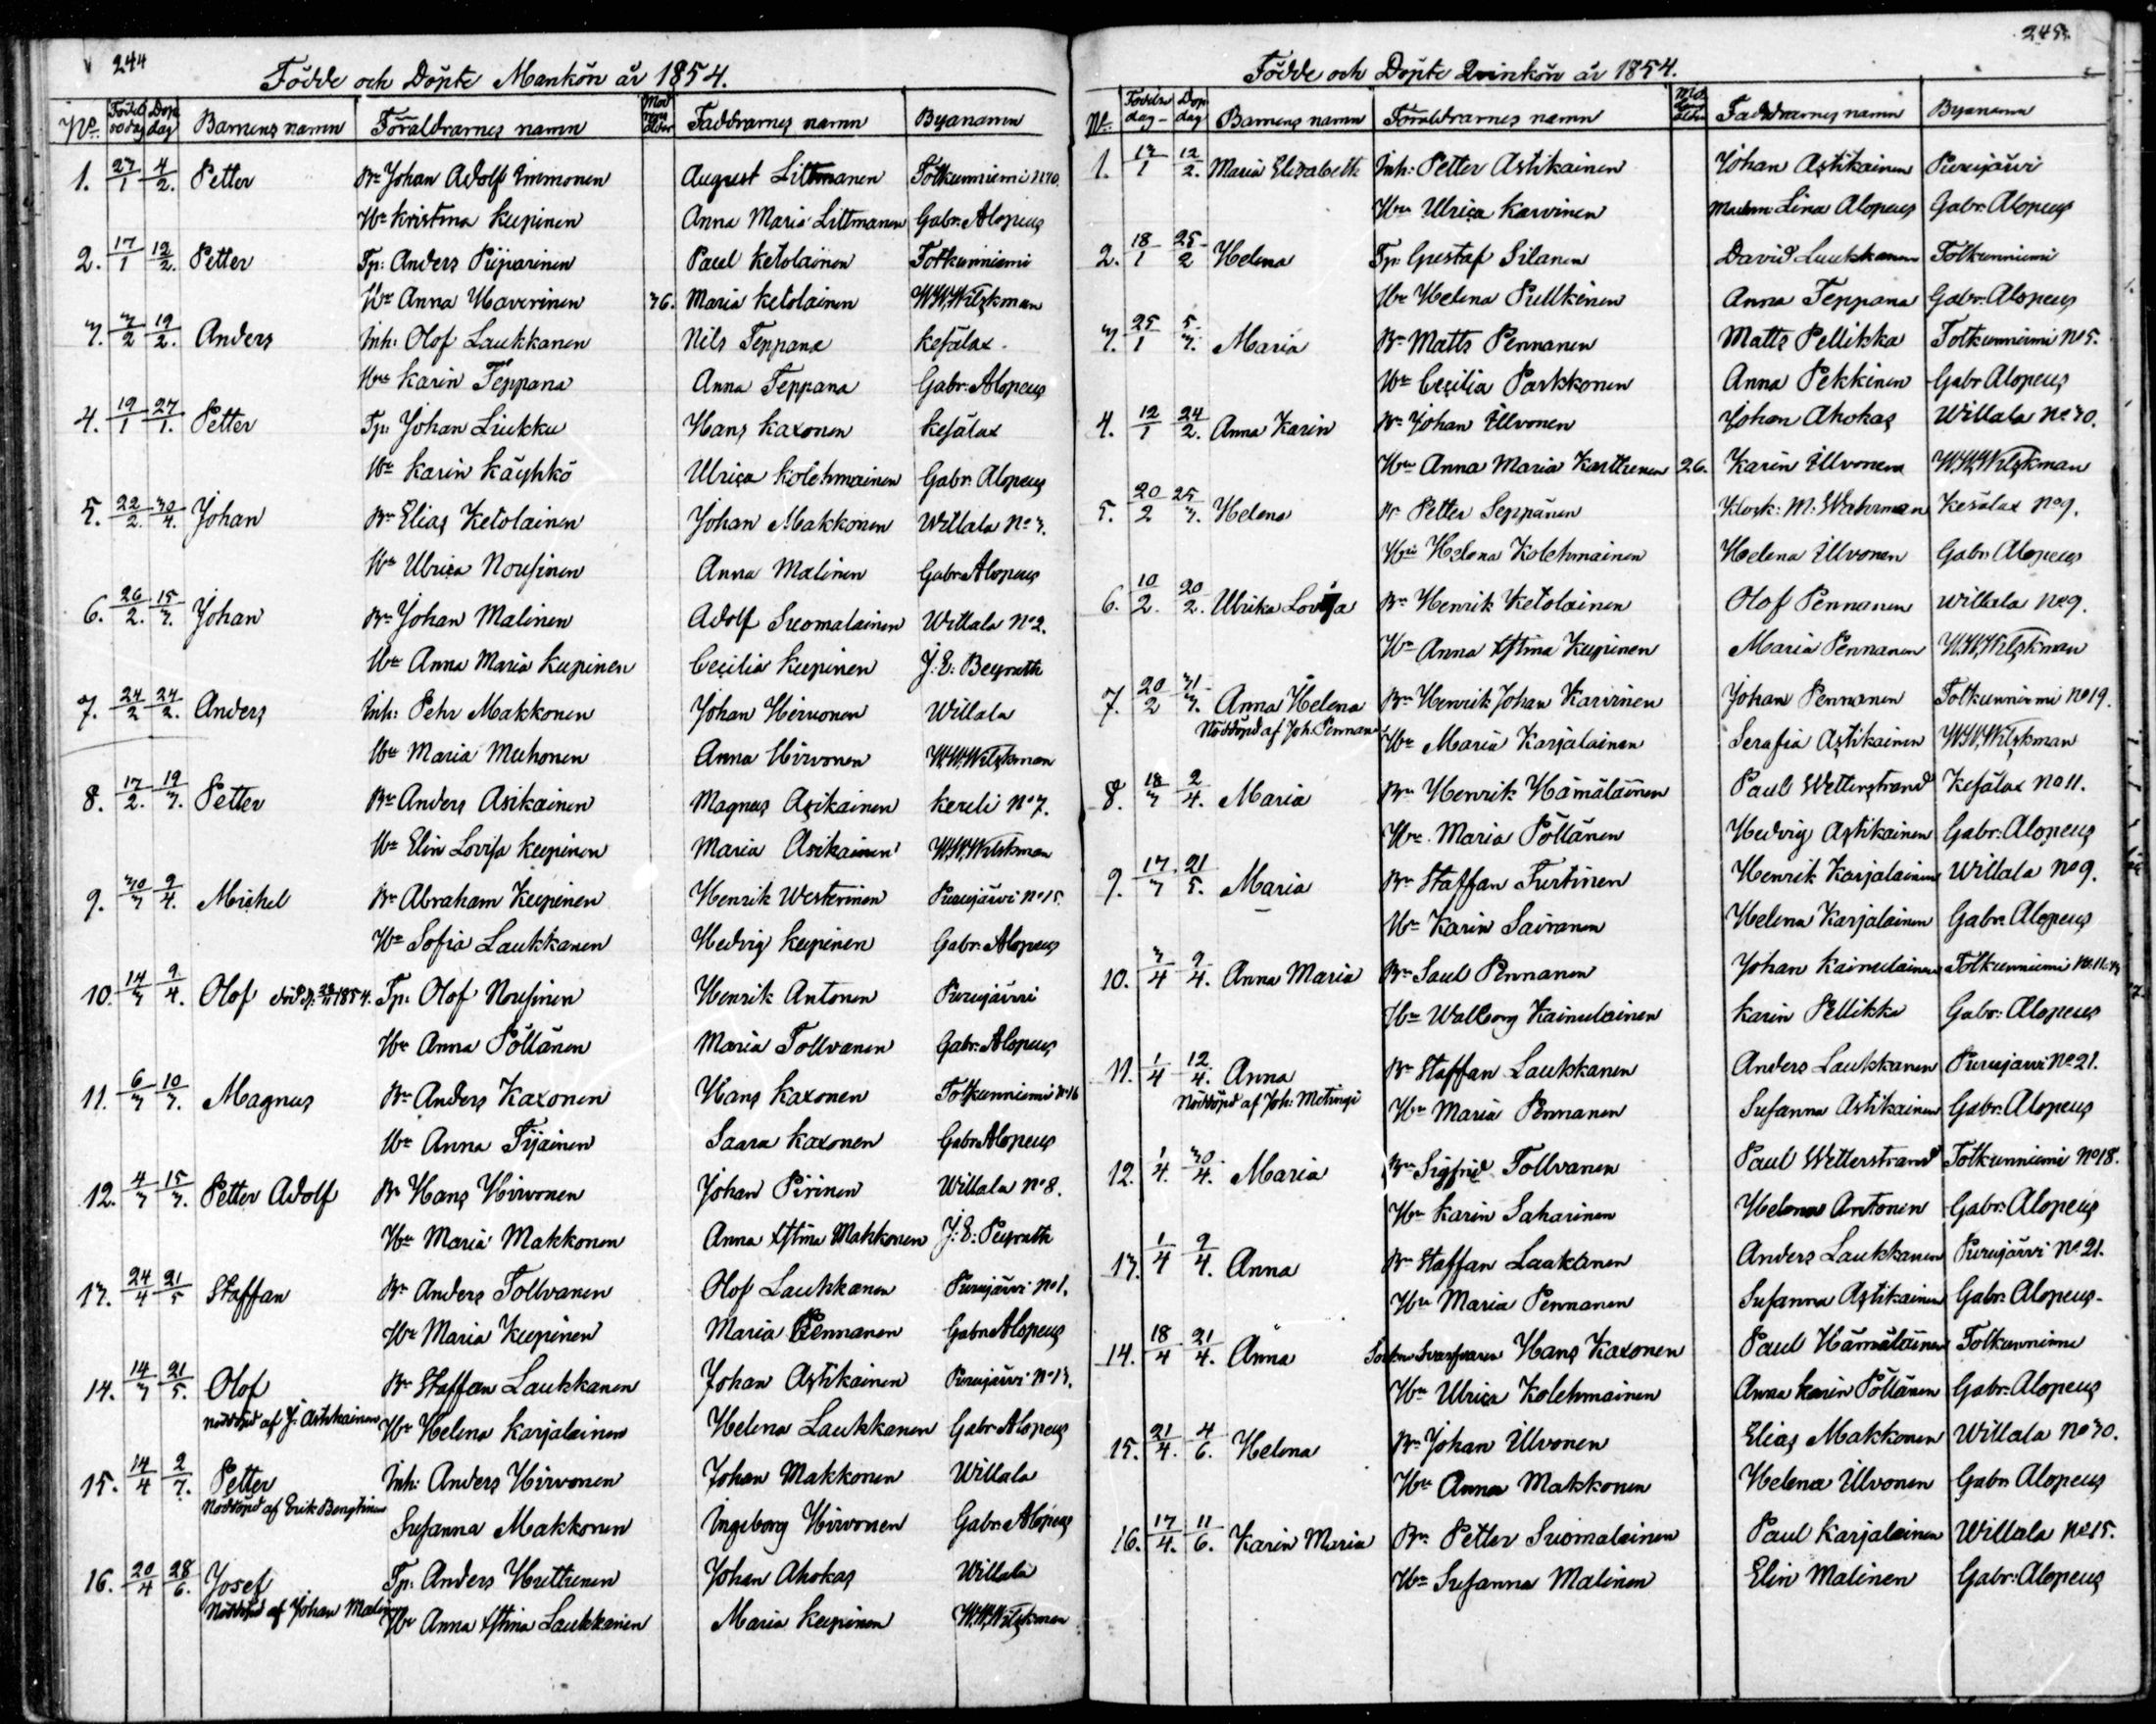 244
Födde och Döpte Mankön år 1854.
No. Födelsedag Dop dag Barnens namn Föräldrarnes namn Moderns ålder Faddrarnes namn Byanamn
1. 27/1 4/2. Petter Bn Johan Adolf Immonen August Littmanen Totkunniemi No 30.
Hu Kristina Kupinen Anna Maria Littmanen Gabr. Alopeus
2. 17/1 12/2. Petter Tp: Anders Piiparinen Paul Ketolainen Totkunniemi
Hu Anna Haverinen 36. Maria Ketolainen W.W.Wilskman
3. 3/2 19/2. Anders Inh: Olof Laukkanen Nils Teppana Kesälax
Hu Karin Teppana Anna Teppana Gabr: Alopeus
4. 19/1 27/1. Petter Tp: Johan Liukku Hans Kaxonen Kesälax
Hu Karin Käyhkö Ulrica Kolehmainen Gabr. Alopeus
5. 22/2. 30/4. Johan Bn Elias Ketolainen Johan Makkonen Willala No 3.
Hu Ulrica Nousinen Anna Malinen Gabr Alopeus
6. 26/2. 15/3. Johan Bn Johan Malinen Adolf Suomalainen Willala No 2.
Hu Anna Maria Kupinen Cecilia Kupinen J: E: Beyrath
7. 24/2 24/2. Anders Inh: Pehr Makkonen Johan Hirvonen Willala
Hu Maria Muhonen Anna Hirvonen W.W.Wilskman
8. 17/2. 19/3. Petter Bn Anders Asikainen Magnus Asikainen Kereli No 7.
Hu Elin Lovisa Kupinen Maria Asikainen W.W.Wilskman
9. 30/3 9/4. Michel Bn Abraham Kupinen Henrik Westerinen Purujärvi No 15.
Hu Sofia Laukkanen Hedvig Kupinen Gabr. Alopeus
10. 14/3 9/4. Olof 1854. Tp: Olof Nousinen Henrik Antonen Purujärvi
Hu Anna Pöllänen Maria Tollvanen Gabr. Alopeus
11. 6/3 10/3. Magnus Bn Anders Kaxonen Hans Kaxonen Totkunniemi No 16
Hu Anna Tijainen Saara Kaxonen Gabr Alopeus
12. 4/3 15/3. Petter Adolf Bn Hans Hirvonen Johan Pirinen Willala No 8.
Hu Maria Makkonen Anna Xstina Makkonen J: E: Peyrath
13. 24/4 21/5 Staffan Bn Anders Tollvanen Olof Laukkanen Purujärvi No 1.
Hu Maria Kupinen Maria Pennanen Gabr Alopeus
14. 14/3 21/5. Olof Bn Staffan Laukkanen Johan Astikainen Purujärvi No 13.
Nöddöpd af J: Astikainen Hu Helena Karjalainen Helena Laukkanen Gabr Alopeus
15. 14/4 2/7. Petter Inh: Anders Hirvonen Johan Makkonen Willala
Nöddöpd af Erik Bengtinen Susanna Makkonen Ingeborg Hirvonen Gabr Alopeus
16. 20/4 28/6. Josef Tp: Anders Huttunen Johan Ahokas Willala
Nöddöpd af Johan Malinen Hu Anna Xstina Laukkanen Maria Kupinen W.W.Wilskman
245.
Födde och Döpte Qvinkön år 1854.
No. Födelse dag Dop dag Barnens namn Föräldrarnes namn Moderns ålder Faddrarnes namn Byanamn
1. 13/1 12/2. Maria Elisabeth Inh: Petter Astikainen Johan Astikainen Purujärvi
Hu Ulrica Karvinen Madam Lina Alopeus Gabr: Alopeus
2. 18/1 25/2 Helena Tp: Gustaf Silanen David Luukkanen Totkunniemi
Hu Helena Pullkinen Anna Teppana Gabr: Alopeus
3. 25/1 5/3. Maria Bn Matts Pennanen Matts Pellikka Totkunniemi No 5.
Hu Cecilia Parkkonen Anna Pekkinen Gabr Alopeus
4. 12/1 24/2. Anna Karin Bn Johan Illvonen Johan Ahokas Willala No 30.
Hu Anna Maria Karttunen 26. Karin Illvonen W.W.Wilskman
5. 20/2 25/3. Helena Bn Petter Seppänen Klock: M: Wahrman Kesälax No 9.
Hu Helena Kolehmainen Helena Illvonen Gabr Alopeus
6. 10/2. 20/2. Ulrika Lovisa Bn Henrik Ketolainen Olof Pennanen Willala No 9.
Hu Anna Xstina Kupinen Maria Pennanen W.W.Wilskman
7. 20/2 31/3. Anna Helena Bn Henrik Johan Karvinen Johan Pennanen Totkunniemi No 19.
Nöddöpd af Joh. Pennanen Hu Maria Karjalainen Serafia Astikainen W.W.Wilskman
8. 18/3 2/4. Maria Bn Henrik Hämäläinen Paul Wetterstrand Kesälax No 11.
Hu Maria Pöllänen Hedvig Astikainen Gabr: Alopeus
9. 17/3 21/5. Maria Bn Staffan Turtinen Henrik Karjalainen Willala No 9.
Hu Karin Sairanen Helena Karjalainen Gabr: Alopeus
10. 3/4 9/4. Anna Maria Bn Saul Pennanen Johan Kainulainen Totkunniemi
Hu Walborg Kainulainen Karin Pellikka Gabr: Alopeus
11. 1/4 12/4. Anna Bn Staffan Laukkanen Anders Laukkanen Purujärvi No 21.
Nöddöpd af Joh: Metinpi Hu Maria Pennanen Susanna Astikainen Gabr: Alopeus
12. 1/4. 30/4. Maria Bn Sigfrid Tollvanen Paul Wetterstrand Totkunniemi No 18.
Hu Karin Saharinen Helena Antonen Gabr: Alopeus
13. 1/4 9/4. Anna Bn Staffan Laukkanen Anders Laukkanen Purujärvi No 21.
Hu Maria Pennanen Susanna Astikainen Gabr: Alopeus
14. 18/4 21/4. Anna Sockne Svarfvaren Hans Kaxonen Paul Hämäläinen Totkunniemi
Hu Ulrica Kolehmainen Anna Karin Pöllänen Gabr: Alopeus
15. 21/4. 4/6. Helena Bn Johan Illvonen Elias Makkonen Willala No 30.
Hu Anna Makkonen Helena Illvonen Gabr Alopeus
16. 17/4. 11/6. Karin Maria Bn Petter Suomalainen Paul Karjalainen Willala No 15.
Hu Susanna Malinen Elin Malinen Gabr: Alopeus